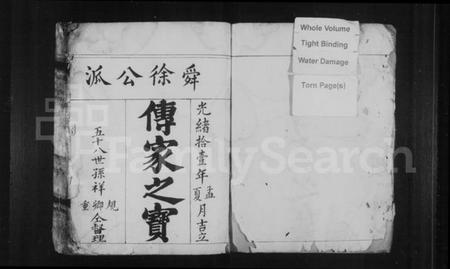 舜徐公派
光緒拾壹年孟夏月吉立
傳家之寶
五十八世孫祥
規卿重
仝督理
Whole Volume
Tight Binding
Water Damage
Torn Page(s)
FamilySearch